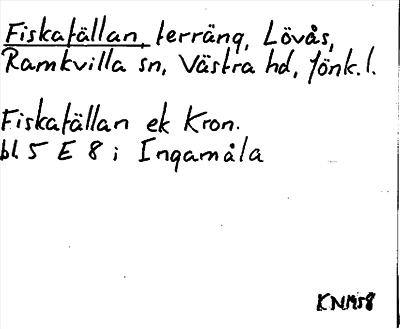 Fiskafällan, terräng, Lövås,
Ramkvilla sn, Västra hd, Jönk. l.
Fiskafällan ek Kron.
bl 5 E 8 i Ingamåla
KN1958